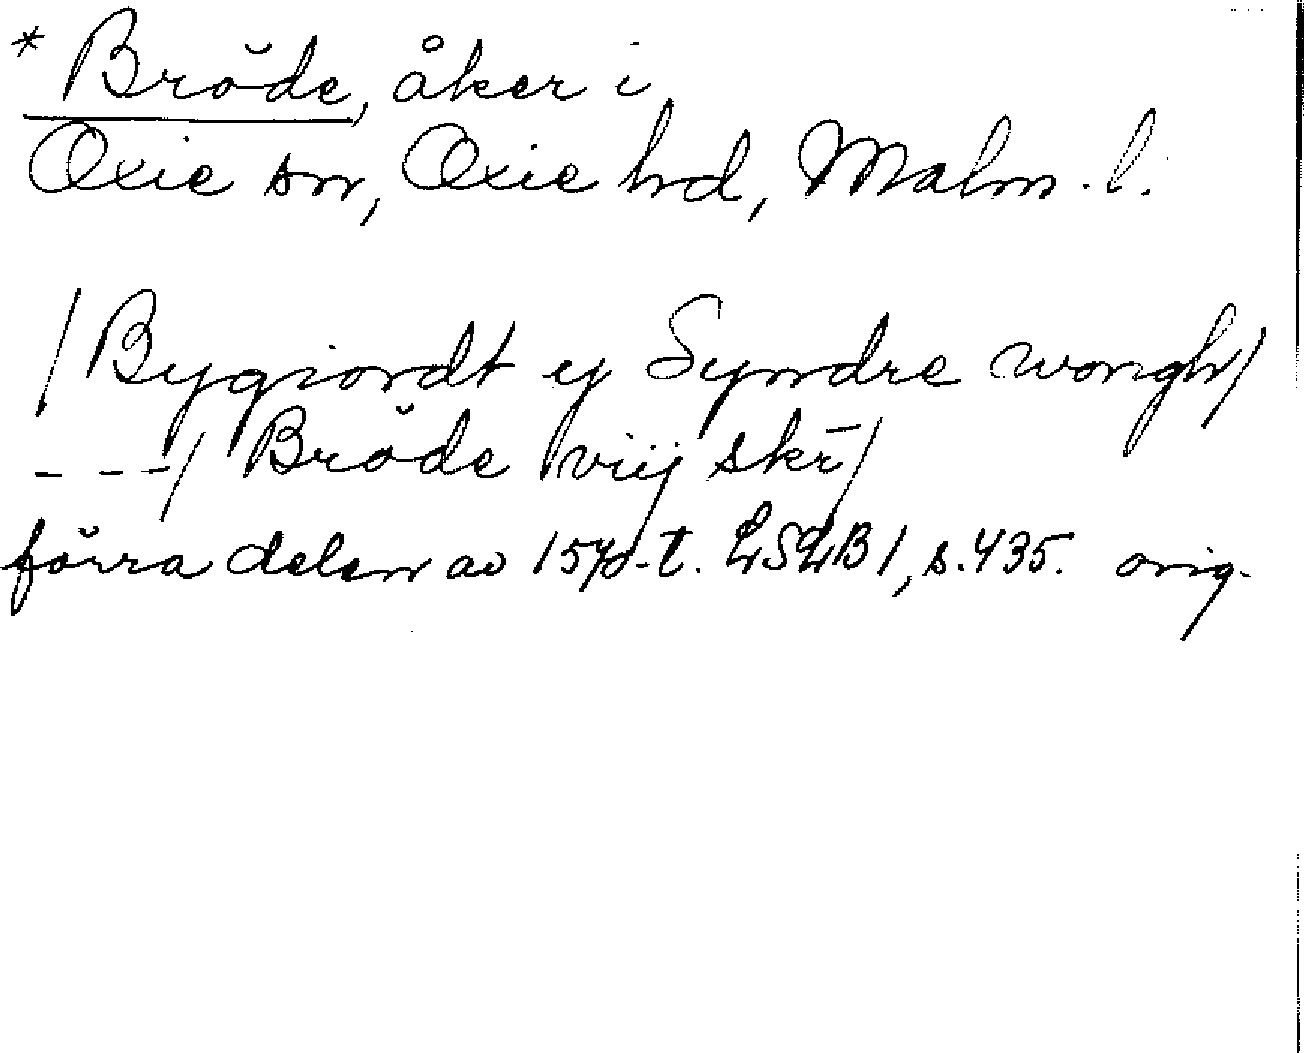 * Bröde, åker i
Oxie sn, Oxie hd, Malm. l.
/Bygiordt ey Syndre wongh/
- - -/ Bröde /viij skr̄/
förra delen av 1570-t. LSLB1, s.435. orig.